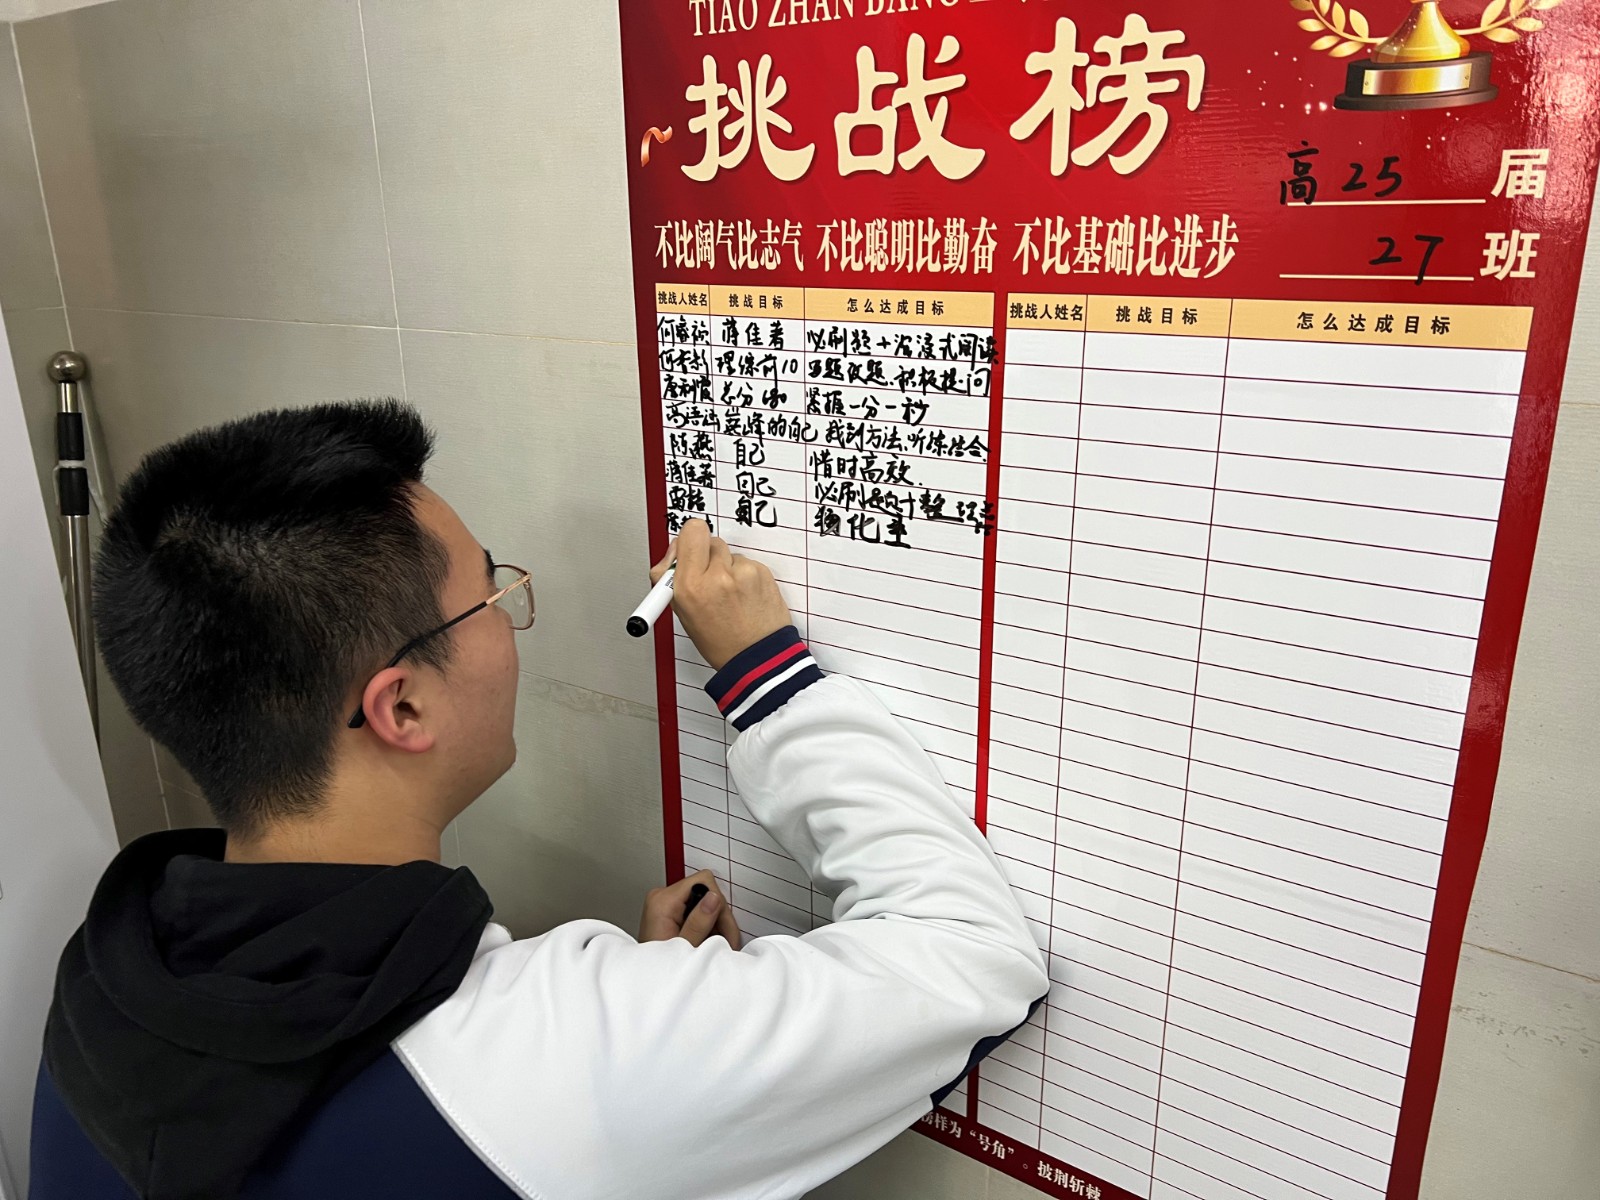 TIAO ZHAN BANG
挑战榜
高25届
27班
不比阔气比志气 不比聪明比勤奋 不比基础比进步
挑战人姓名 挑战目标 怎么达成目标 挑战人姓名 挑战目标 怎么达成目标
何睿 蒋佳著 必刷题+沉浸式阅读
理综前10 积极提问
总分480 紧握一分一秒
高语涵 巅峰的自己 找到方法、听练结合
陈燕 自己 惜时高效
蒋佳著 自己 必刷题+整
雷喆 自己 物化生
榜样为“号角”。披荆斩棘